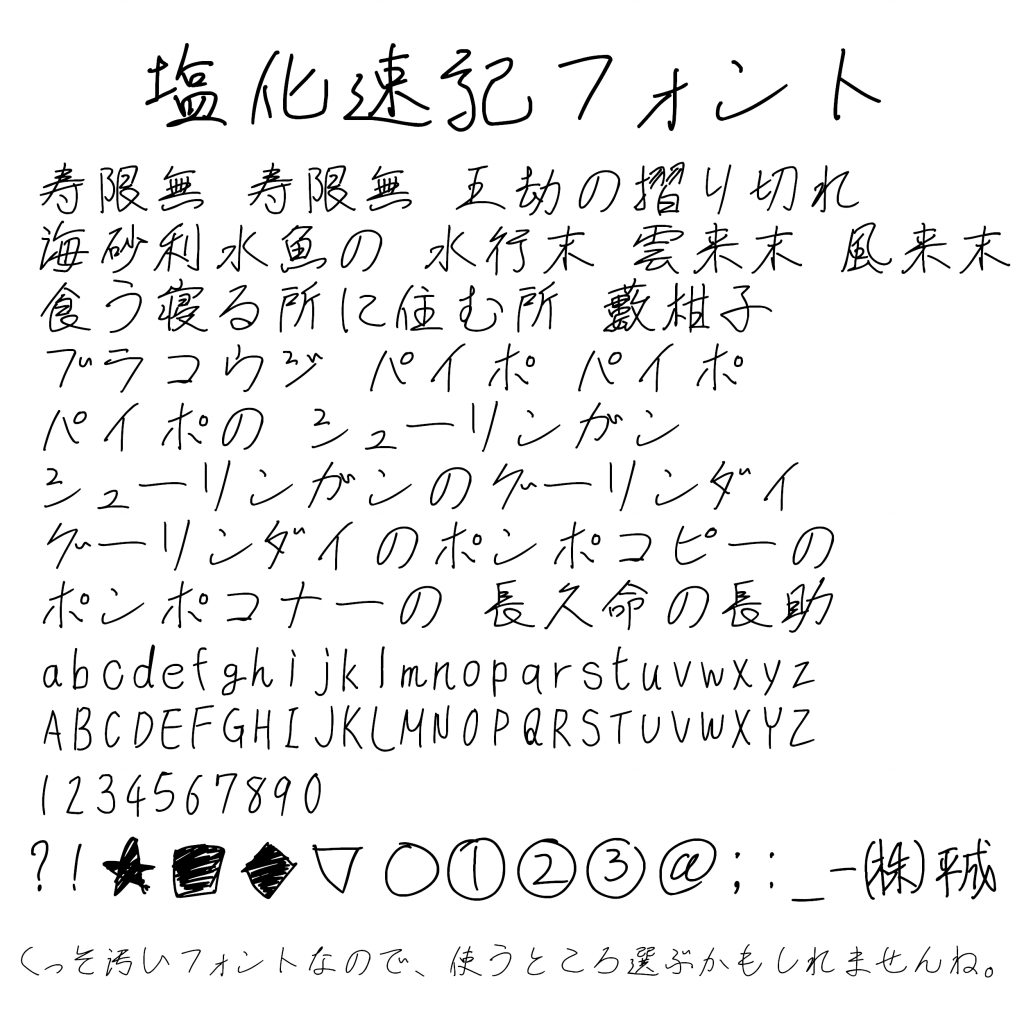 塩化速記フォント
寿限無 寿限無 五劫の摺り切れ
海砂利水魚の 水行末 雲来末 風来末
食う寝る所に住む所 藪柑子
ブラコウジ パイポ パイポ
パイポの シューリンガン
シューリンガンのグーリンダイ
グーリンダイのポンポコピーの
ポンポコナーの 長久命の長助
abcdefghijklmnopqrstuvwxyz
ABCDEFGHIJKLMNOPQRSTUVWXYZ
1234567890
?!★■◆▽○①②③@;:_-㈱㍻
くっそ汚いフォントなので、使うところ選ぶかもしれませんね。